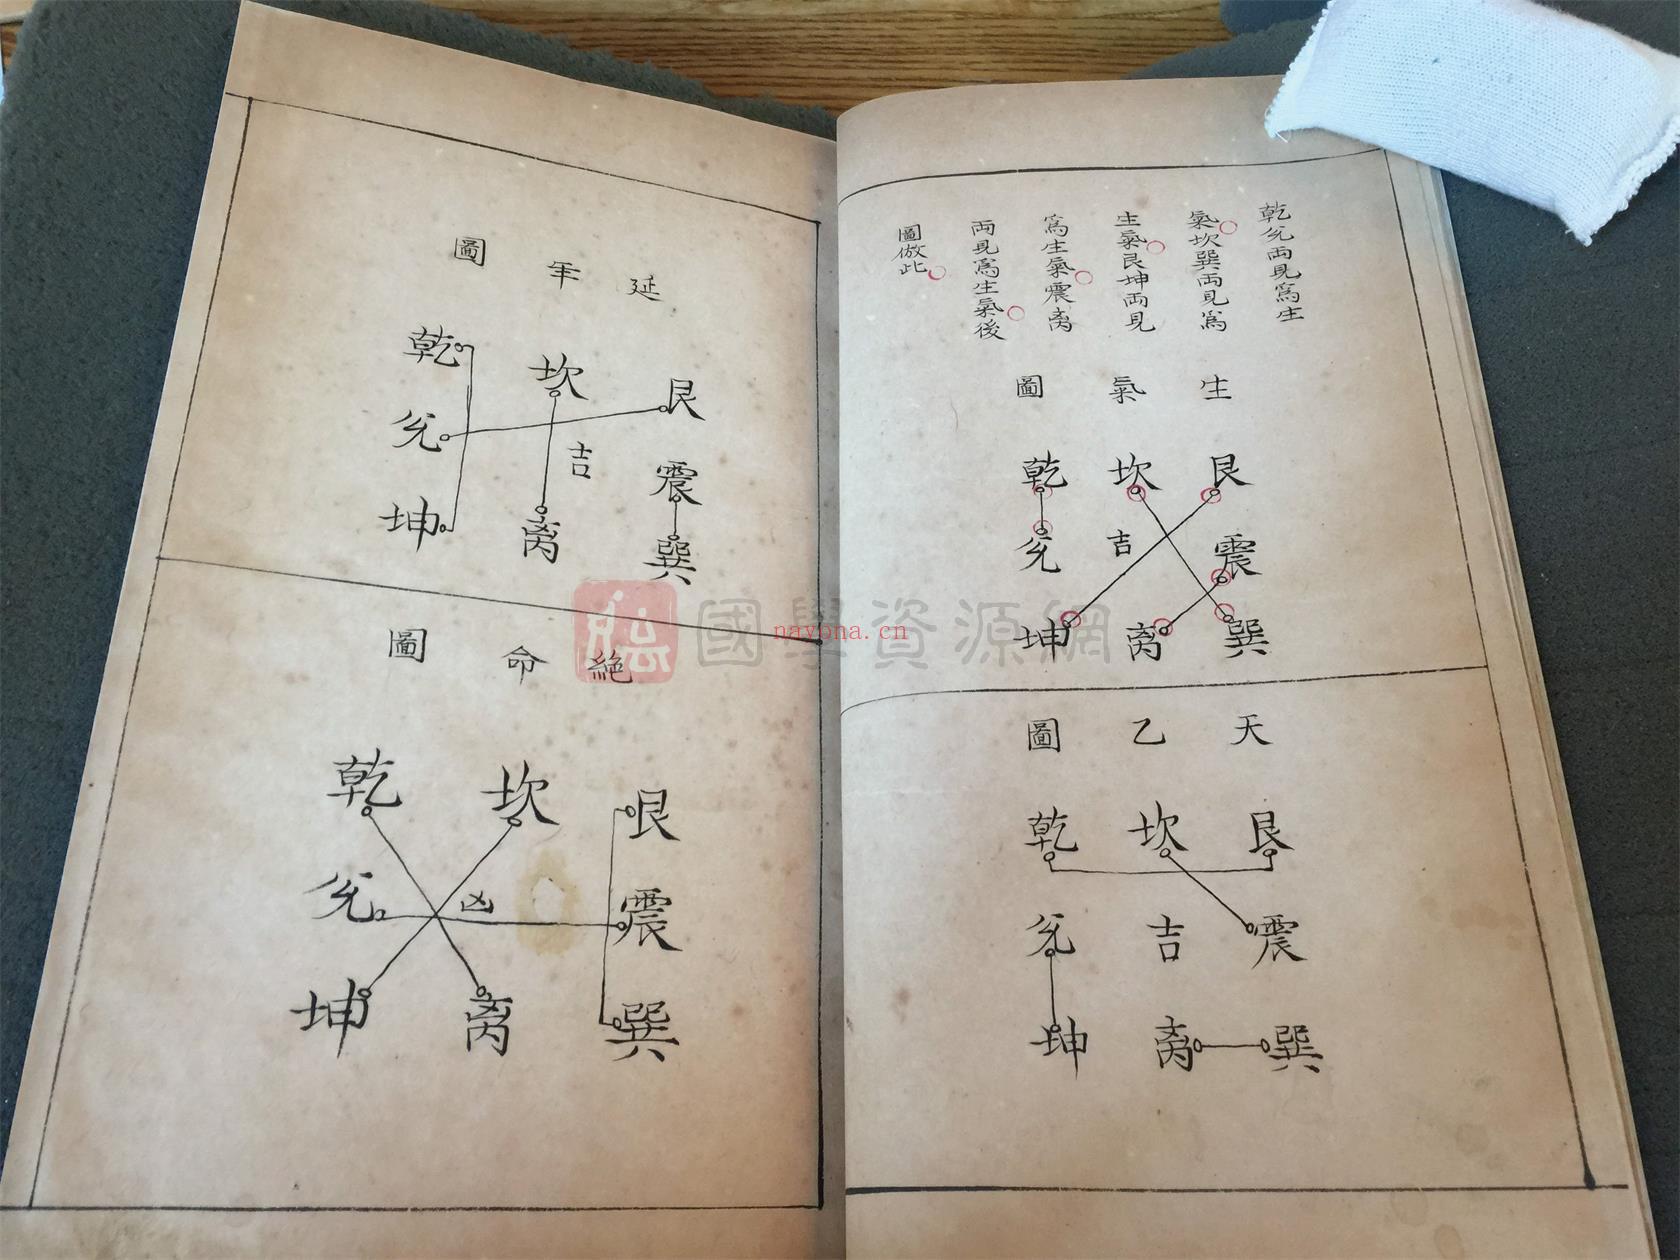 乾兊両見為生
氣坎巽両見為
生氣艮坤両見
為生氣震离
両見為生氣後
圖倣此
生氣圖
艮坎乾
震吉兊
巽离坤
天乙圖
艮坎乾
震吉兊
巽离坤
延年圖
艮坎乾
震吉兊
巽离坤
絕命圖
艮坎乾
震凶兊
巽离坤
國學資源網
nayona.cn